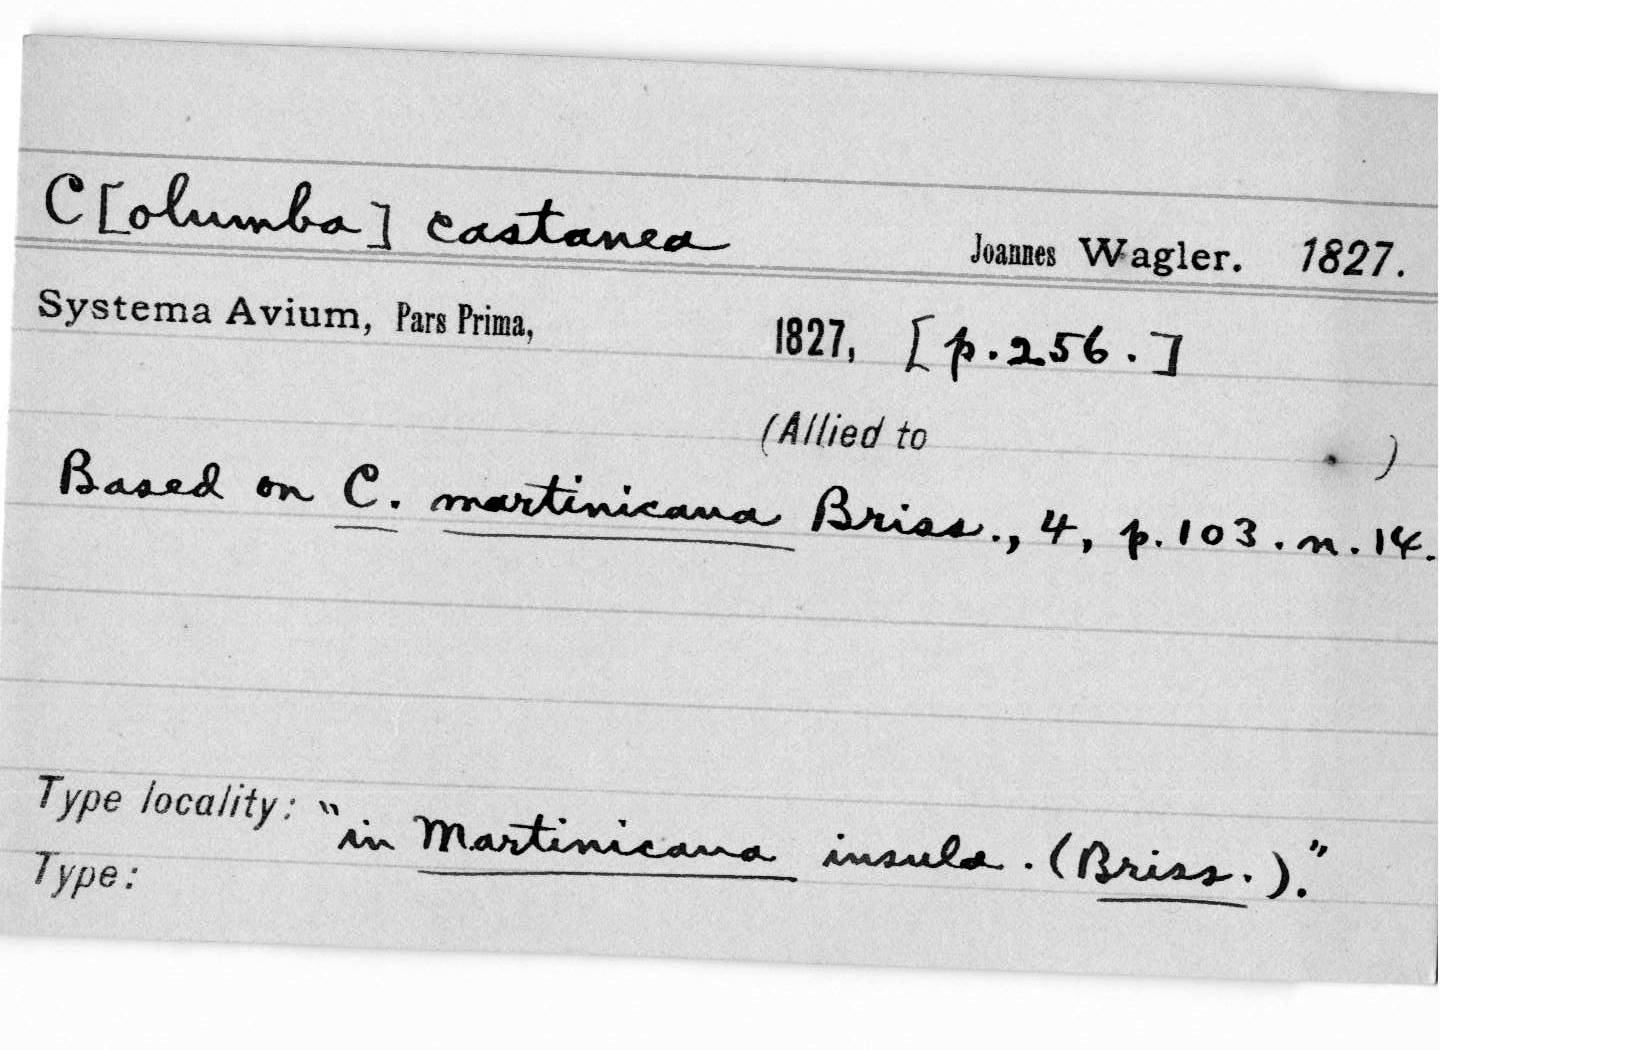 C[olumba] castanea Joannes Wagler. 1827.
Systema Avium, Pars Prima, 1827, [p.256.]
(Allied to . )
Based on C. martinicana Briss., 4, p.103.n.14.
Type locality: "in Martinicana insula. (Briss.)."
Type: